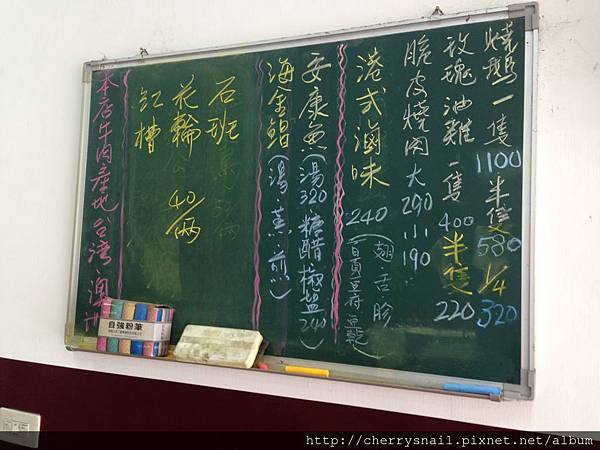 燒鵝一隻1100半隻580 1/4 320
玫瑰油雞一隻400半隻220
脆皮燒肉大290小190
港式滷味240(翅.舌.胗
百頁豆府豆乾)
安康魚(湯320.糖醋.椒鹽240)
海金鯧(湯.蒸.煎)
石班
花輪40/兩
紅槽
本店牛肉產地台灣.澳洲
自強粉筆
http://cherrysnail.pixnet.net/album